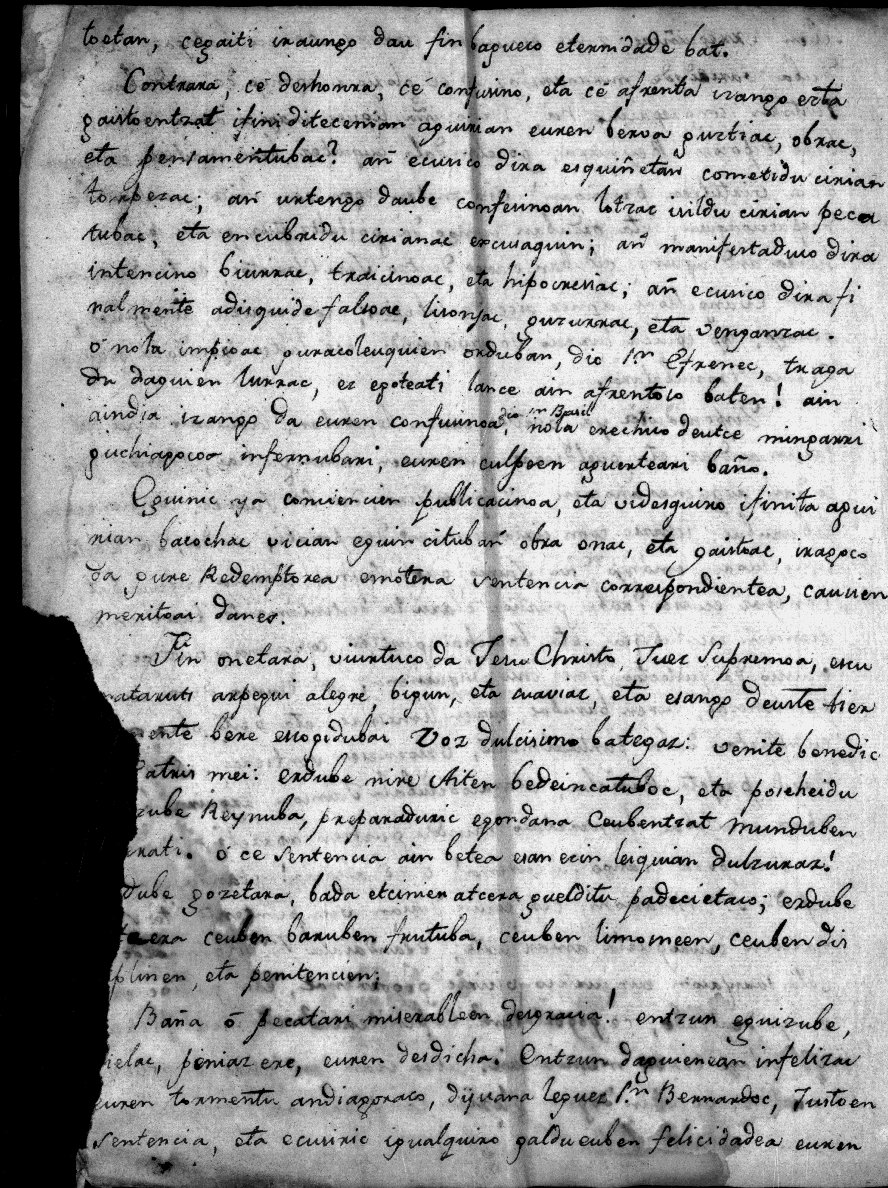 toetan, cegaiti iraungo dau finbagueco eternidade bat.
Contrara, cé deshonra, cé confusino, eta cé afrenta izango ezta
gaistoentzat ifini ditecenian aguirian euren berva guztiac, obrac,
eta pensamentubac? añ ecusico dira esquiñetan cometidu cirian
torpezac; añ urtengo daube confesinoan lotzac isildu cirian peca
tubac, eta encubridu cirianac excusaquin; añ manifestaduco dira
intencino biurrac, traicinoac, eta hipocresiac; añ ecusico dira fi
nalmente adisquide falsoac, lisonjac, guzurrac, eta venganzac.
ó nola impioac guracoleuquien orduban, dio Sn. Efrenec, traga
du daguien lurrac, ez egoteati lance ain afrentoso baten! ain
andia izango da euren confusinoa, dio Sn Basil nola erechico deutce mingarri
guchiagocoa infernubari, euren culpeen aguerteari baño.
Eguinic ya conciencien publicacinoa, eta videsquiro ifinita agui
rian bacochac vician eguin citubañ obra onac, eta gaistoac, iragoco
da gure Redemptorea emotera sentencia correspondientea, causien
meritoai danez.
Fin onetara, viurtuco da Jesu Christo, Juez Supremoa, escu
mataruts arpegui alegre, bigun, eta suaviac, eta esango deuste tier
mente bere escogidubai voz dulcisimo bategaz: venite benedic
Patris mei: erdube nire Aiten bedeincatuboc, eta poscheidu
zube Reynuba, preparaduric egondana Ceubentzat munduben
rrati. ó ce sentencia ain betea esan ecin leiquian dulzuraz!
dube gozetara, bada etcimen atcera gueldittu padecietaco; erdube
tera ceuben baruben frutuba, ceuben limosneen, ceuben dis
iplinen, eta penitencien:
Baña ó pecatari miserableen desgracia! entzun eguizube,
ielac, peniaz ere, euren desdicha: Entzun daguienean infelizac
euren tormentu andiagoraco, diyuana leguez Sn. Bernardoc, Justoen
sentencia, eta ecusiric igualquiro galdueuben felicidadea euren